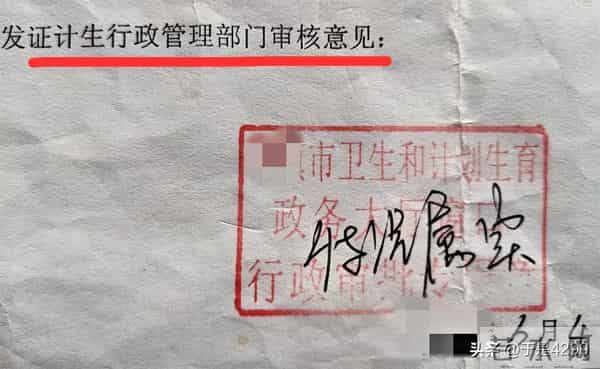 发证计生行政管理部门审核意见：
市卫生和计划生育
政务大厅窗口
情况属实
行政审批专用章
3月4
头条@于生4290